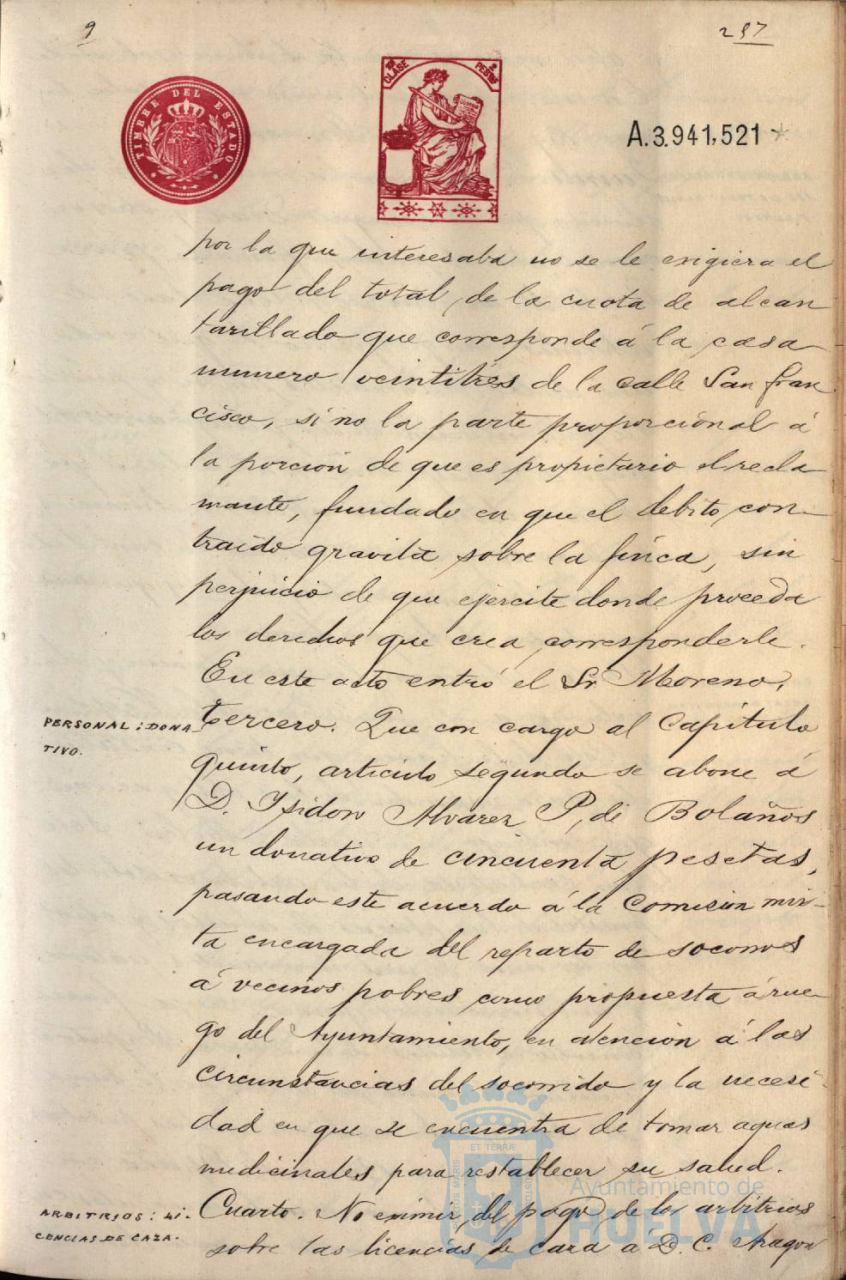 9
257
TIMBRE DEL ESTADO
CLASE
PESTAS
A.3.941,521
por la que interesaba no se le exigiera el
pago del total de la cuota de alcan
tarillado que corresponde á la casa
numero veintitrés de la calle San Fran
cisco, sino la parte proporcional á
la porción de que es propietario el recla
mante, fundado en que el debito con-
traido gravita sobre la finca, sin
perjuicio de que ejercite donde proceda
los derechos que crea corresponderle.
En este acto entró el Sr Moreno.
PERSONAL: DONA
TIVO.
Tercero. Que con cargo al Capitulo
quinto, articulo segundo se abone á
D. Isidoro Alvarez P. de Bolaños
un donativo de cincuenta pesetas,
pasando este acuerdo á la Comision mix-
ta encargada del reparto de socorros
á vecinos pobres como propuesta á rue-
go del Ayuntamiento, en atencion á las
circunstancias del socorrido y la necesi-
dad en que se encuentra de tomar aguas
medicinales para restablecer su salud.
ARBITRIOS: LI-
CENCIAS DE CAZA.
Cuarto. No eximir del pago de los arbitrios
sobre las licencias de caza a D. C. Aragon
Ayuntamiento de
HUELVA